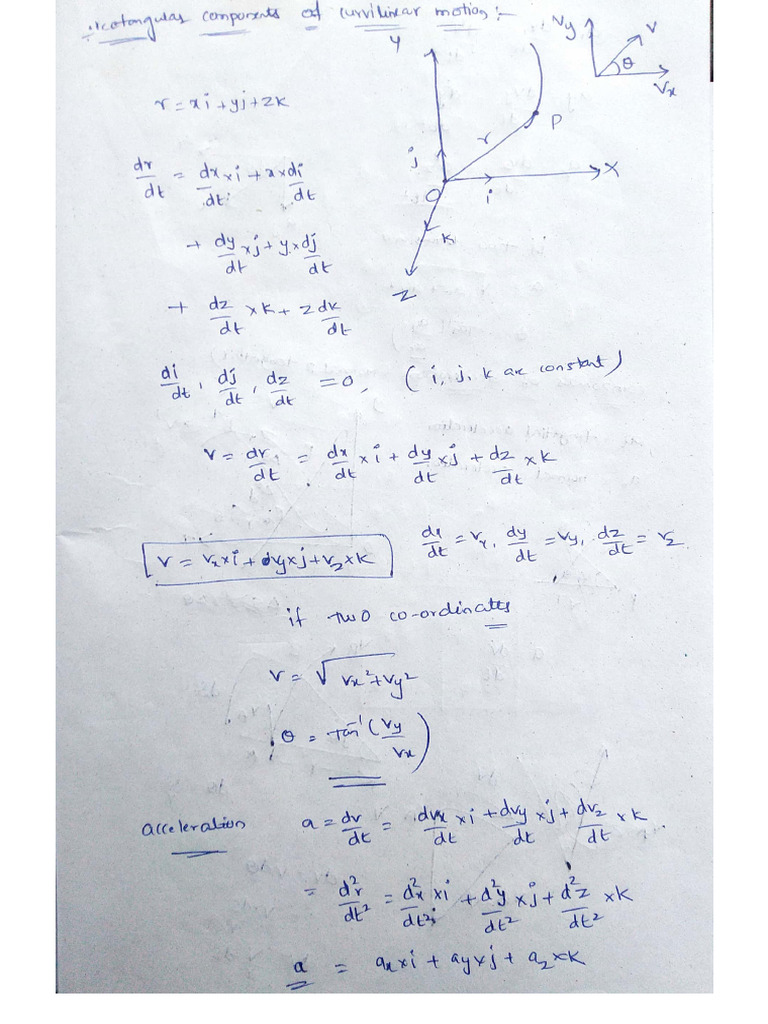 Rectangular components of curvilinear motion :-
Y
Vy
V
θ
Vx
r = xi + yj + zk
P
r
j
X
O
i
K
Z
dr/dt = dx/dt × i + x × di/dt
+ dy/dt × j + y × dj/dt
+ dz/dt × k + z dk/dt
di/dt, dj/dt, dz/dt = 0, ( i, j, k are constant )
V = dr/dt = dx/dt × i + dy/dt × j + dz/dt × k
dx/dt = Vx, dy/dt = Vy, dz/dt = Vz
V = Vx × i + Vy × j + Vz × k
if two co-ordinates
V = √Vx² + Vy²
θ = tan⁻¹ (Vy/Vx)
acceleration a = dv/dt = dvx/dt × i + dvy/dt × j + dvz/dt × k
= d²r/dt² = d²x/dt² × i + d²y/dt² × j + d²z/dt² × k
a = ax × i + ay × j + az × k